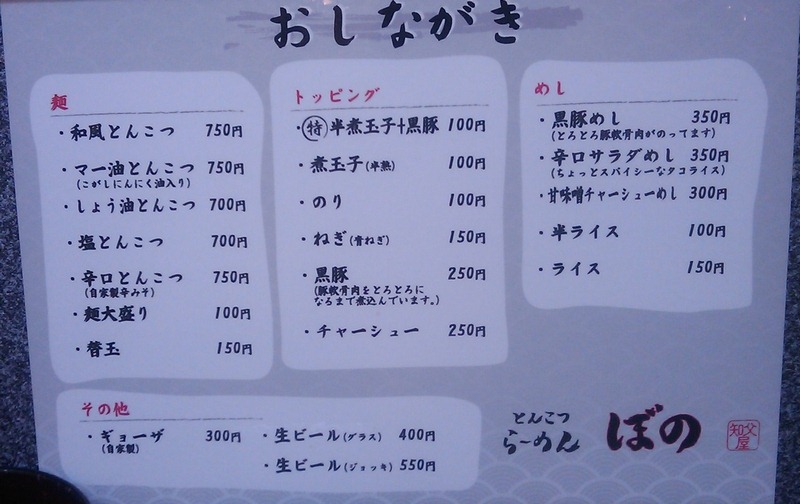 おしながき
麺
・和風とんこつ 750円
・マー油とんこつ 750円
(こがしにんにく油入り)
・しょう油とんこつ 700円
・塩とんこつ 700円
・辛口とんこつ 750円
(自家製辛みそ)
・麺大盛り 100円
・替玉 150円
トッピング
・特半煮玉子+黒豚 100円
・煮玉子(半熟) 100円
・のり 100円
・ねぎ(青ねぎ) 150円
・黒豚 250円
(豚軟骨肉をとろとろに
なるまで煮込んでいます。)
・チャーシュー 250円
めし
・黒豚めし 350円
(とろとろ豚軟骨肉がのってます)
・辛口サラダめし 350円
(ちょっとスパイシーなタコライス)
・甘味噌チャーシューめし 300円
・半ライス 100円
・ライス 150円
その他
・ギョーザ 300円
(自家製)
・生ビール(グラス) 400円
・生ビール(ジョッキ) 550円
とんこつ
らーめん
ぼの
知父屋